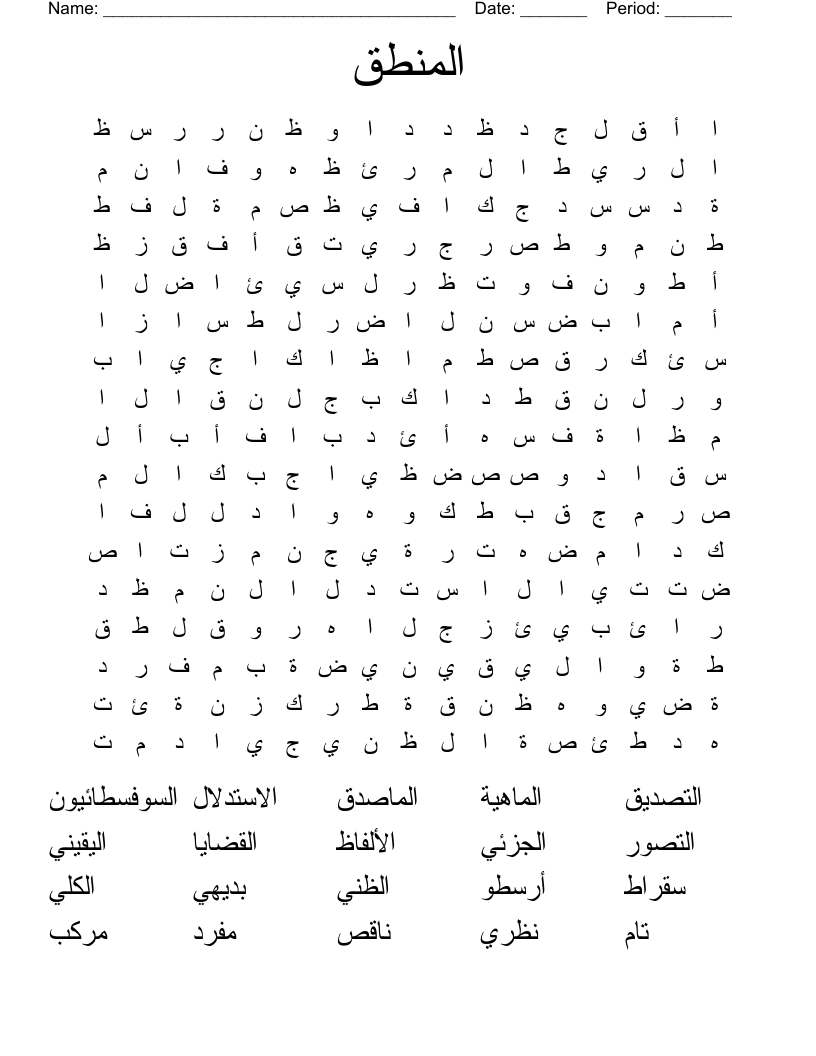 Name: ______________________________________ Date: _______ Period: _______
المنطق
ا أ ق ل ج د ظ د د ا و ظ ن ر ر س ظ
ا ل ر ي ط ا ل م ر ئ ظ ه و ف ا ن م
ة د س س د ج ك ا ف ي ظ ص م ة ل ف ط
ط ن م و ط ص ر ج ر ي ت ق أ ف ق ز ظ
أ ط و ن ف و ت ظ ر ل س ي ئ ا ض ل ا
أ م ا ب ض س ن ل ا ض ر ل ط س ا ز ا
س ئ ك ر ق ص ط م ا ظ ا ك ا ج ي ا ب
و ر ل ن ق ط د ا ك ب ج ل ن ق ا ل ا
م ظ ا ة ف س ه أ ئ د ب ا ف أ ب أ ل
س ق ا د و ص ص ض ظ ي ا ج ب ك ا ل م
ص ر م ج ق ب ط ك و ه و ا د ل ل ف ا
ك د ا م ض ه ت ر ة ي ج ن م ز ت ا ص
ض ت ت ي ا ل ا س ت د ل ا ل ن م ظ د
ر ا ئ ب ي ئ ز ج ل ا ه ر و ق ل ط ق
ط ة و ا ل ي ق ي ن ي ض ة ب م ف ر د
ة ض ي و ه ظ ن ق ة ط ر ك ز ن ة ئ ت
ه د ط ئ ص ة ا ل ظ ن ي ج ي ا د م ت
التصديق الماهية الماصدق الاستدلال السوفسطائيون
التصور الجزئي الألفاظ القضايا اليقيني
سقراط أرسطو الظني بديهي الكلي
تام نظري ناقص مفرد مركب